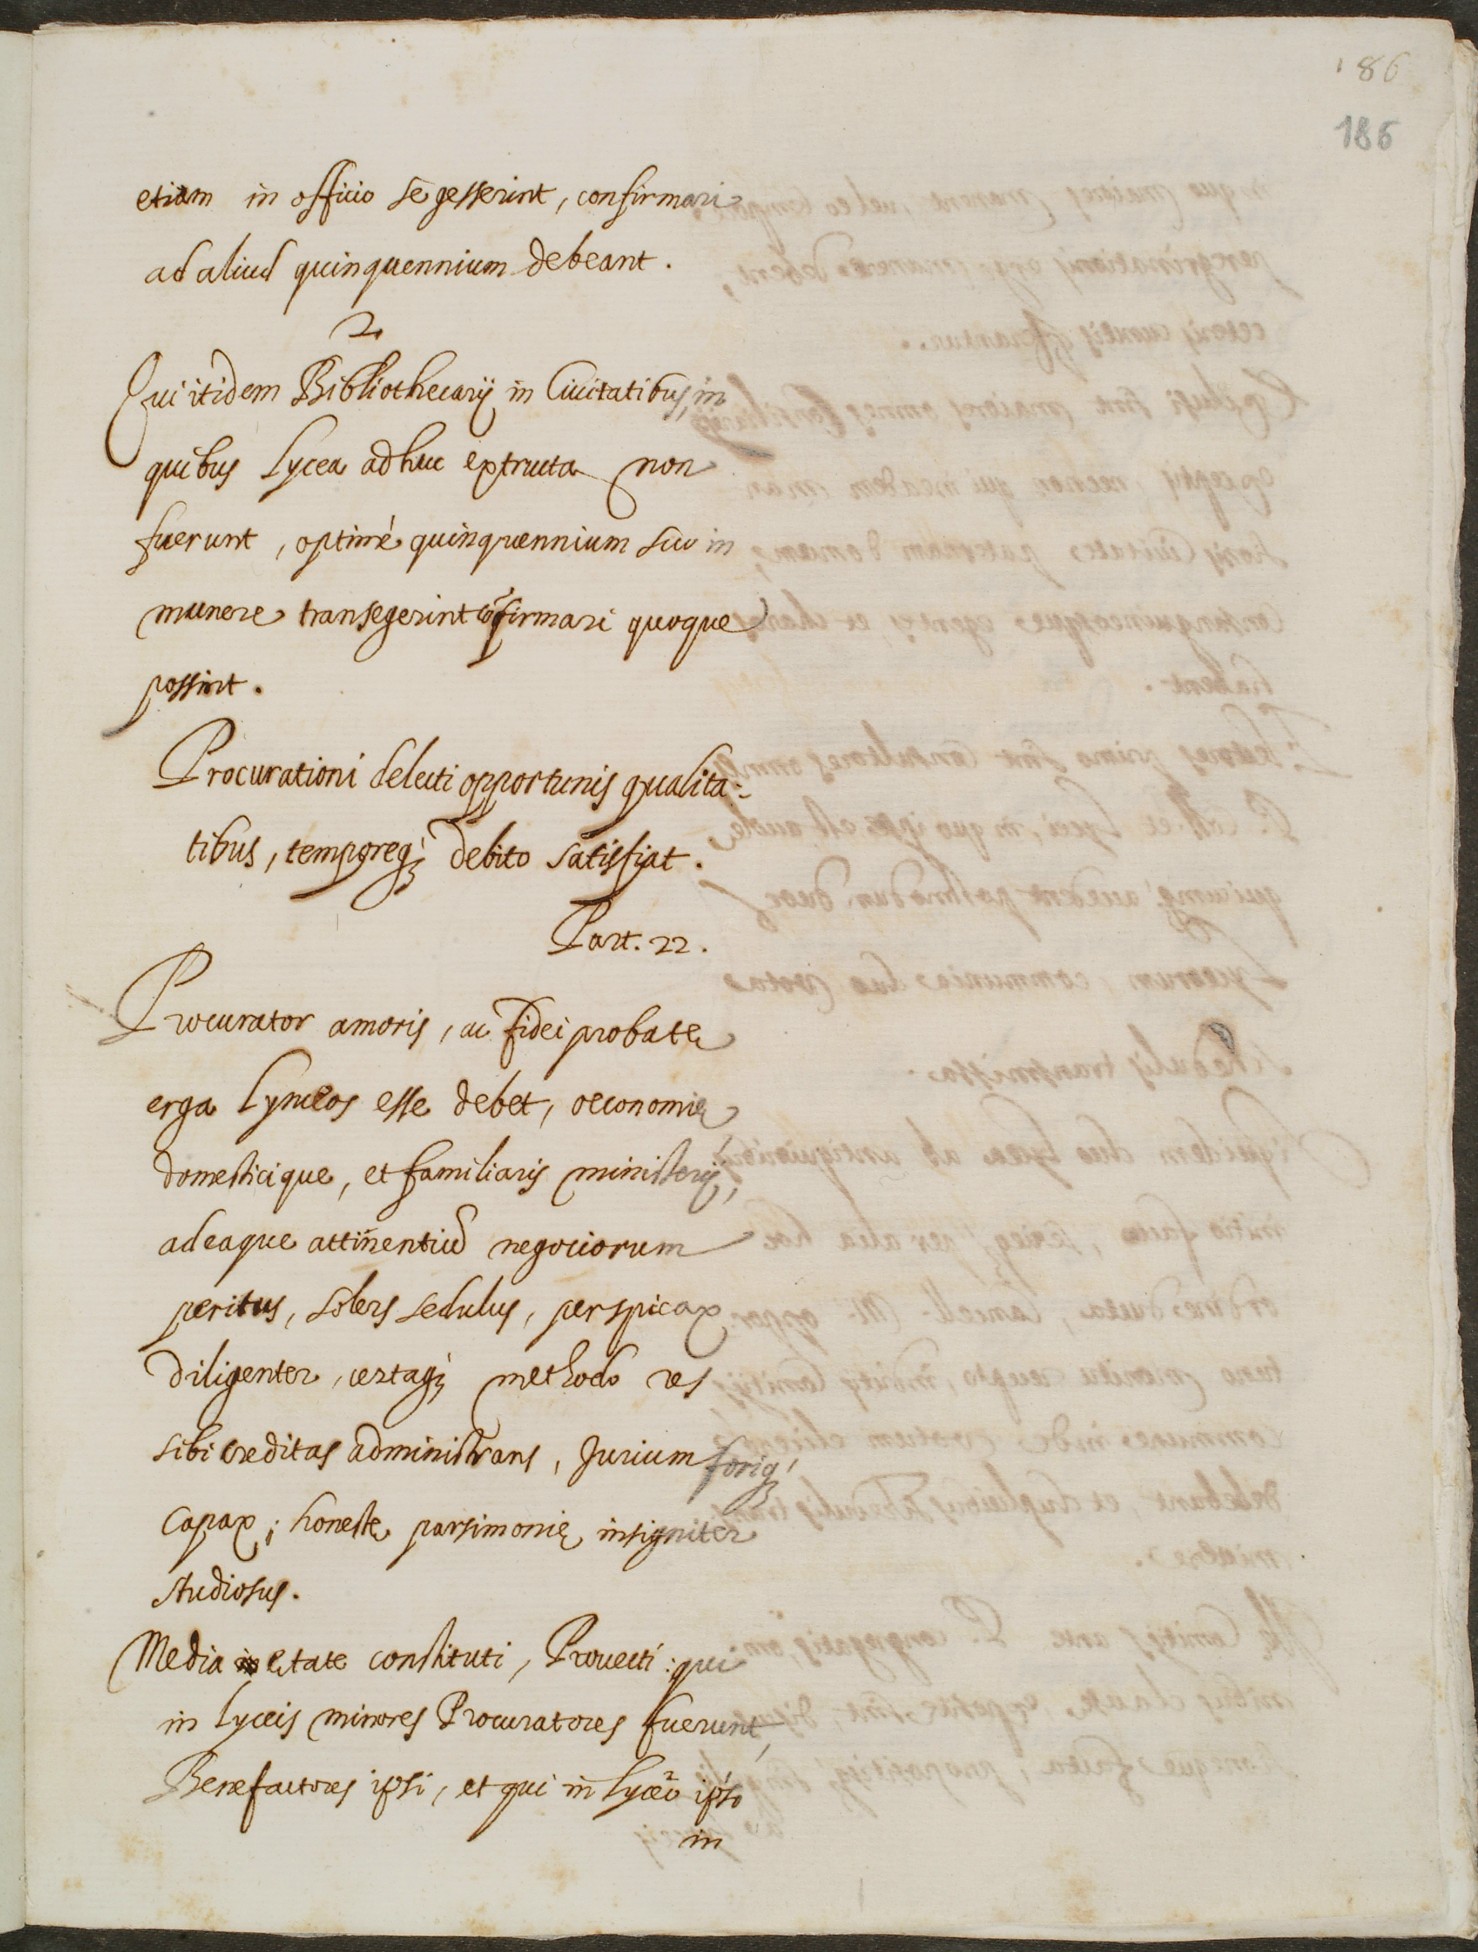 186
186
etiam in officio se gesserint, confirmari
ad aliud quinquennium debeant.
2
Qui itidem Bibliothecarij in Ciuitatibus, in
quibus Lycea adhuc extructa non
fuerunt, optimè quinquennium suo in
munere transegerint cõfirmari quoque
possint.
Procurationi delecti opportunis qualita-
tibus, temporeq; debito satisfiat.
Part. 22.
Procurator amoris, ac fidei probatę
erga Lynceos esse debet, oeconomię
domesticique, et familiaris ministerij,
ad eaque attinentiũ negociorum
peritus, solers sedulus, perspicax
diligenter, certaq; methodo res
sibi creditas administrans, Jurium foriq;
capax; honestę parsimonię insigniter
studiosus.
Media ętate constituti, Prouecti: qui
in Lyceis minores Procuratores fuerunt,
Benefactores ipsi, et qui in Lycęo ipso
in